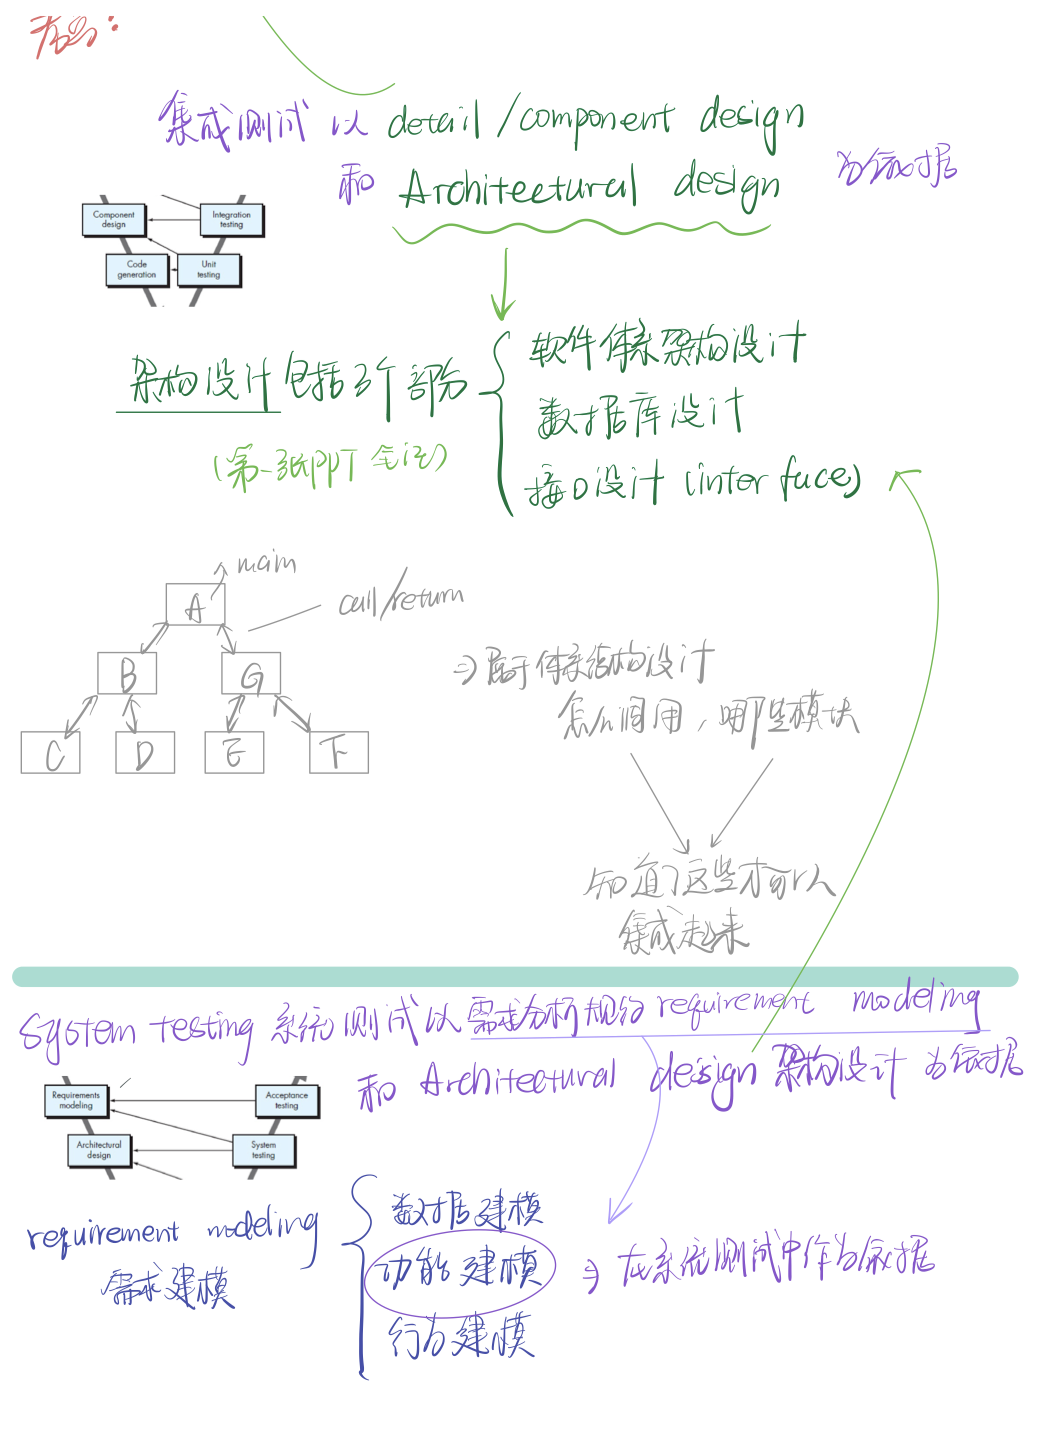 考点:
集成测试 以 detail/component design
和 Architectural design 为依据
Component design
Integration testing
Code generation
Unit testing
架构设计包括3个部分
(第一张PPT 全注)
软件体系架构设计
数据库设计
接口设计 (interface)
main
call/return
A
B
G
C
D
E
F
=> 属于体系结构设计
怎么调用, 哪些模块
知道了这些才可以
集成起来
System testing 系统测试以需求分析规约 requirement modeling
和 Architectural design 架构设计 为依据
Requirements modeling
Acceptance testing
Architectural design
System testing
requirement modeling
需求建模
数据建模
功能建模
行为建模
=> 在系统测试中作为依据